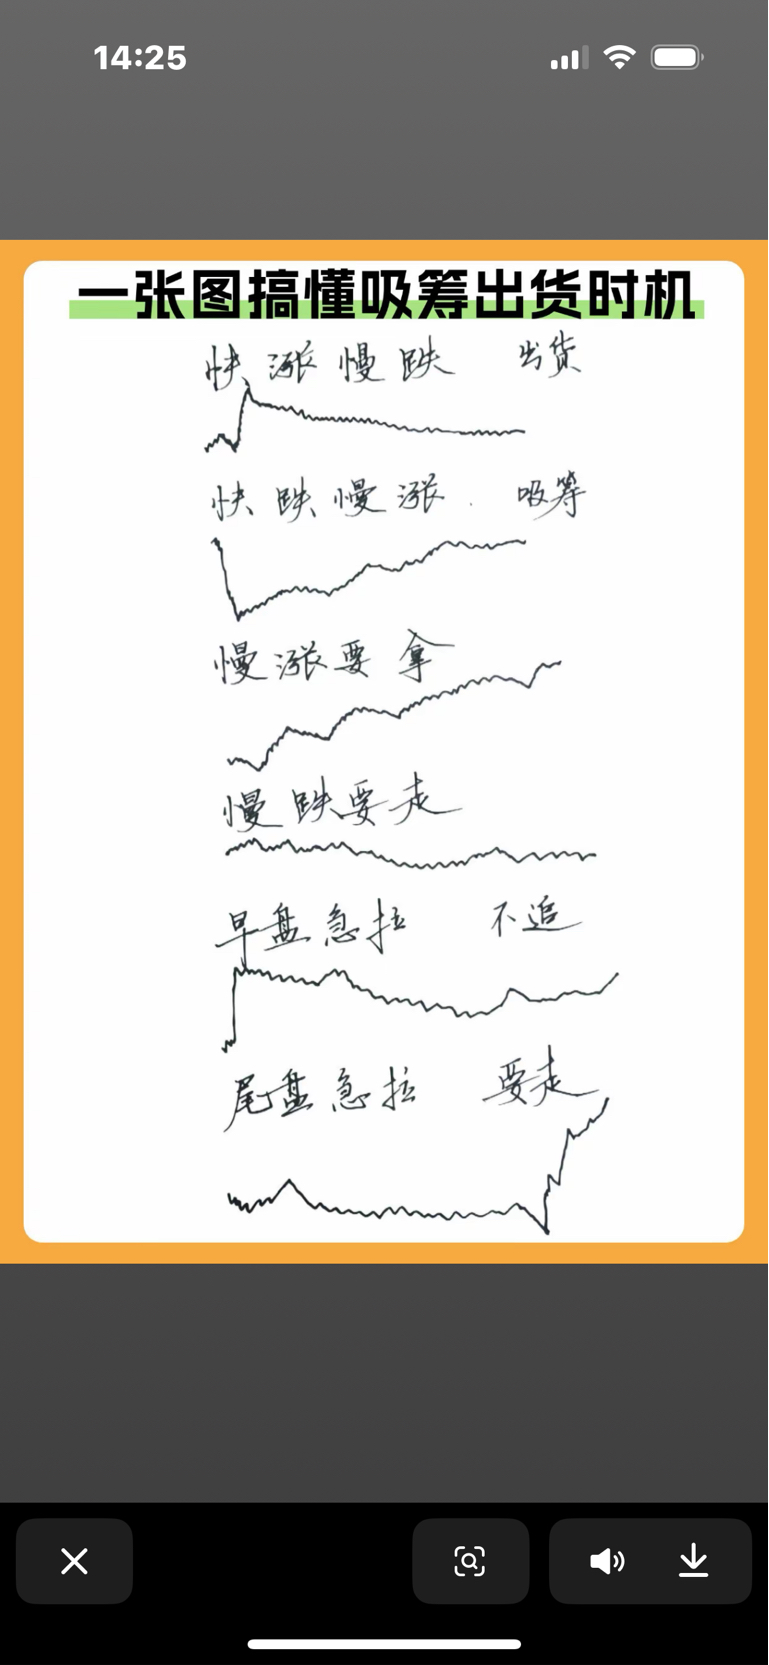 14:25
一张图搞懂吸筹出货时机
快涨慢跌 出货
快跌慢涨. 吸筹
慢涨要拿
慢跌要走
早盘急拉 不追
尾盘急拉 要走